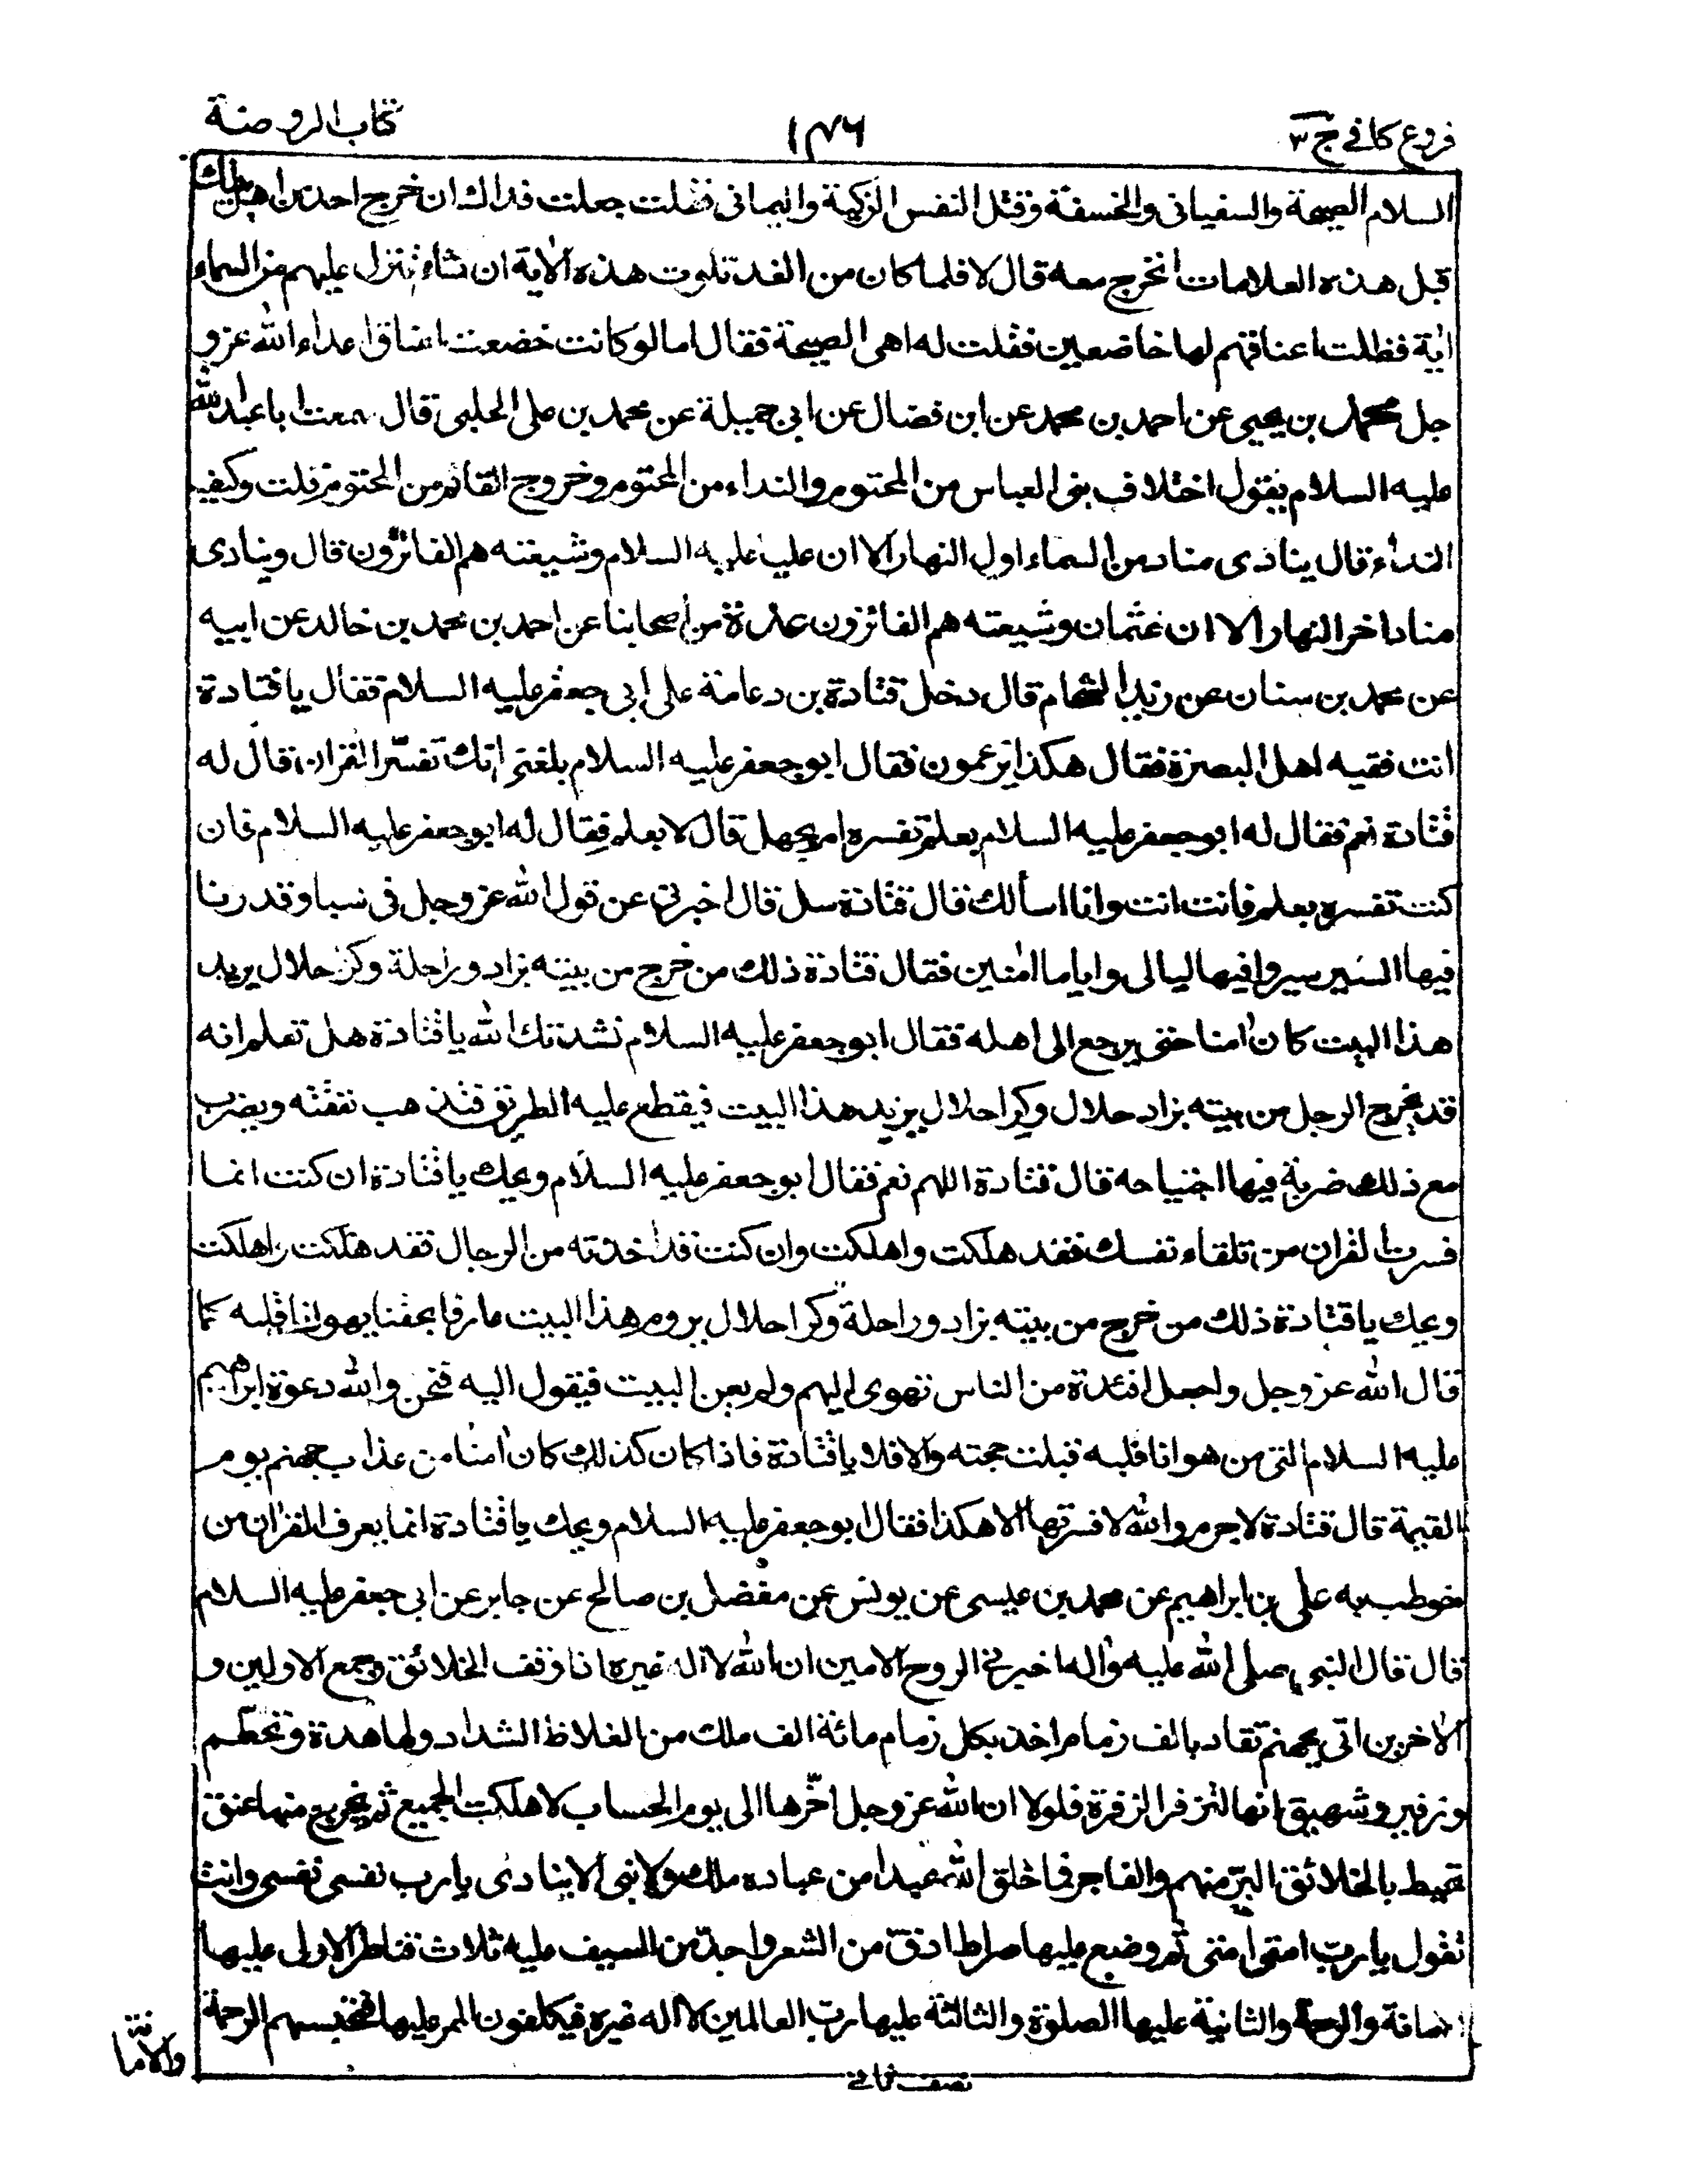 فروع كافي ج ٣
١٤٦
كتاب الروضة
السلام الصيحة والسفياني والخسفة وقتل النفس الزكية واليماني فقلت جعلت فداك ان خرج احد من اهل بيتك
قبل هذه العلامات انخرج معه قال لا فلما كان من الغد تلوت هذه الاية ان نشاء ننزل عليهم من السماء
اية فظلت اعناقهم لها خاضعين فقلت له اهى الصيحة فقال اما لو كانت خضعت اعناق اعداء الله عز و
جل محمد بن يحيى عن احمد بن محمد عن ابن فضال عن ابي جميلة عن محمد بن على الحلبي قال سمعت ابا عبد الله
عليه السلام يقول اختلاف بني العباس من المحتوم والنداء من المحتوم وخروج القائم من المحتوم قلت وكيف
النداء قال ينادى مناد من السماء اول النهار الا ان عليا عليه السلام وشيعته هم الفائزون قال وينادى
مناد اخر النهار الا ان عثمان وشيعته هم الفائزون عدة من اصحابنا عن احمد بن محمد بن خالد عن ابيه
عن محمد بن سنان عن زيد الشحام قال دخل قتادة بن دعامة على ابي جعفر عليه السلام فقال يا قتادة
انت فقيه اهل البصرة فقال هكذا يزعمون فقال ابو جعفر عليه السلام بلغني انك تفسّر القران قال له
قتادة نعم فقال له ابو جعفر عليه السلام بعلم تفسره ام بجهل قال لا بعلم فقال له ابو جعفر عليه السلام فان
كنت تفسره بعلم فانت انت وانا اسألك قال قتادة سل قال اخبرني عن قول الله عز وجل في سبا وقدرنا
فيها السير سيروا فيها ليالى واياما امنين فقال قتادة ذلك من خرج من بيته بزاد وراحلة وكرى حلال يريد
هذا البيت كان امنا حتى يرجع الى اهله فقال ابو جعفر عليه السلام نشدتك الله يا قتادة هل تعلم انه
قد يخرج الرجل من بيته بزاد حلال وكرا حلال يريد هذا البيت فيقطع عليه الطريق فتذهب نفقته ويضرب
مع ذلك ضربة فيها اجتياحه قال قتادة اللهم نعم فقال ابو جعفر عليه السلام ويحك يا قتادة ان كنت انما
فسرت القران من تلقاء نفسك فقد هلكت واهلكت وان كنت قد اخذته من الرجال فقد هلكت واهلكت
ويحك يا قتادة ذلك من خرج من بيته بزاد وراحلة وكرا حلال يروم هذا البيت عارفا بحقنا يهوانا قلبه كما
قال الله عز وجل واجعل افئدة من الناس تهوى اليهم ولم يعن البيت فيقول اليه فنحن والله دعوة ابراهيم
عليه السلام التي من هوانا قلبه قبلت حجته والا فلا يا قتادة فاذا كان كذلك كان امنا من عذاب جهنم يوم
القيمة قال قتادة لا جرم والله لا فسرتها الا هكذا فقال ابو جعفر عليه السلام ويحك يا قتادة انما يعرف القران من
خوطب به على بن ابراهيم عن محمد بن عيسى عن يونس عن مفضل بن صالح عن جابر عن ابي جعفر عليه السلام
قال قال النبي صلى الله عليه واله اخبرني الروح الامين ان الله لا اله غيره اذا وقف الخلائق وجمع الاولين و
الاخرين اتى بجهنم تقاد بالف زمام اخذ بكل زمام مائة الف ملك من الغلاظ الشداد ولها هدة وتحطّم
وزفير وشهيق انها لتزفر الزفرة فلولا ان الله عز وجل اخّرها الى يوم الحساب لاهلكت الجميع ثم يخرج منها عنق
تحيط بالخلائق البرّ منهم والفاجر فما خلق الله عبدا من عباده ملك ولا نبي الا ينادى يا رب نفسى نفسى وانت
تقول يا ربّ امتى امتى ثم وضع عليها صراط ادقّ من الشعر واحدّ من السيف عليه ثلاث قناطر الاولى عليها
الامانة والرحمة والثانية عليها الصلوة والثالثة عليها ربّ العالمين لا اله غيره فيكلفون الممر عليها فتحبسهم الرحمة
والامانة